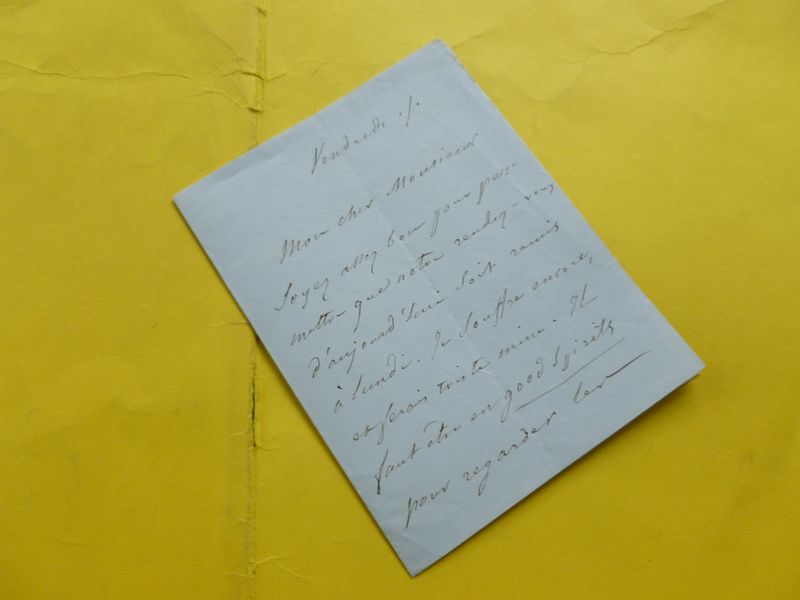 Vendredi
Mon cher Monsieur
Soyez assez bon pour per-
mettre que notre rendez-vous
d'aujourd'hui soit remis
à lundi. Je souffre encore,
et ferais triste mine. Il
faut être en good spirits
pour regarder les